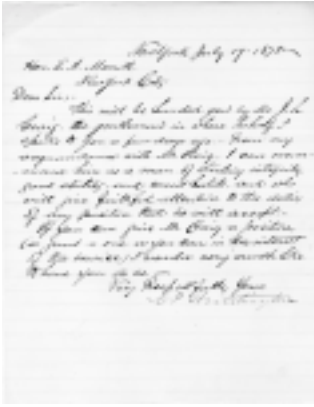 July 19 - 187
Hon. E. A. Merritt
New York City
Dear Sir:
This will be handed you by Mr. J. L.
Craig, the gentleman in whose behalf I
spoke to you a few days ago. From my
acquaintance with Mr. Craig, I can recom-
mend him as a man of sterling integrity
good ability, and who
will give faithful attention to the duties
of any position that he will accept.
If you can give Mr. Craig a position
as good a one as you can in the interest
of the service, I would very much like
to have you do so.
Very Respectfully Yours